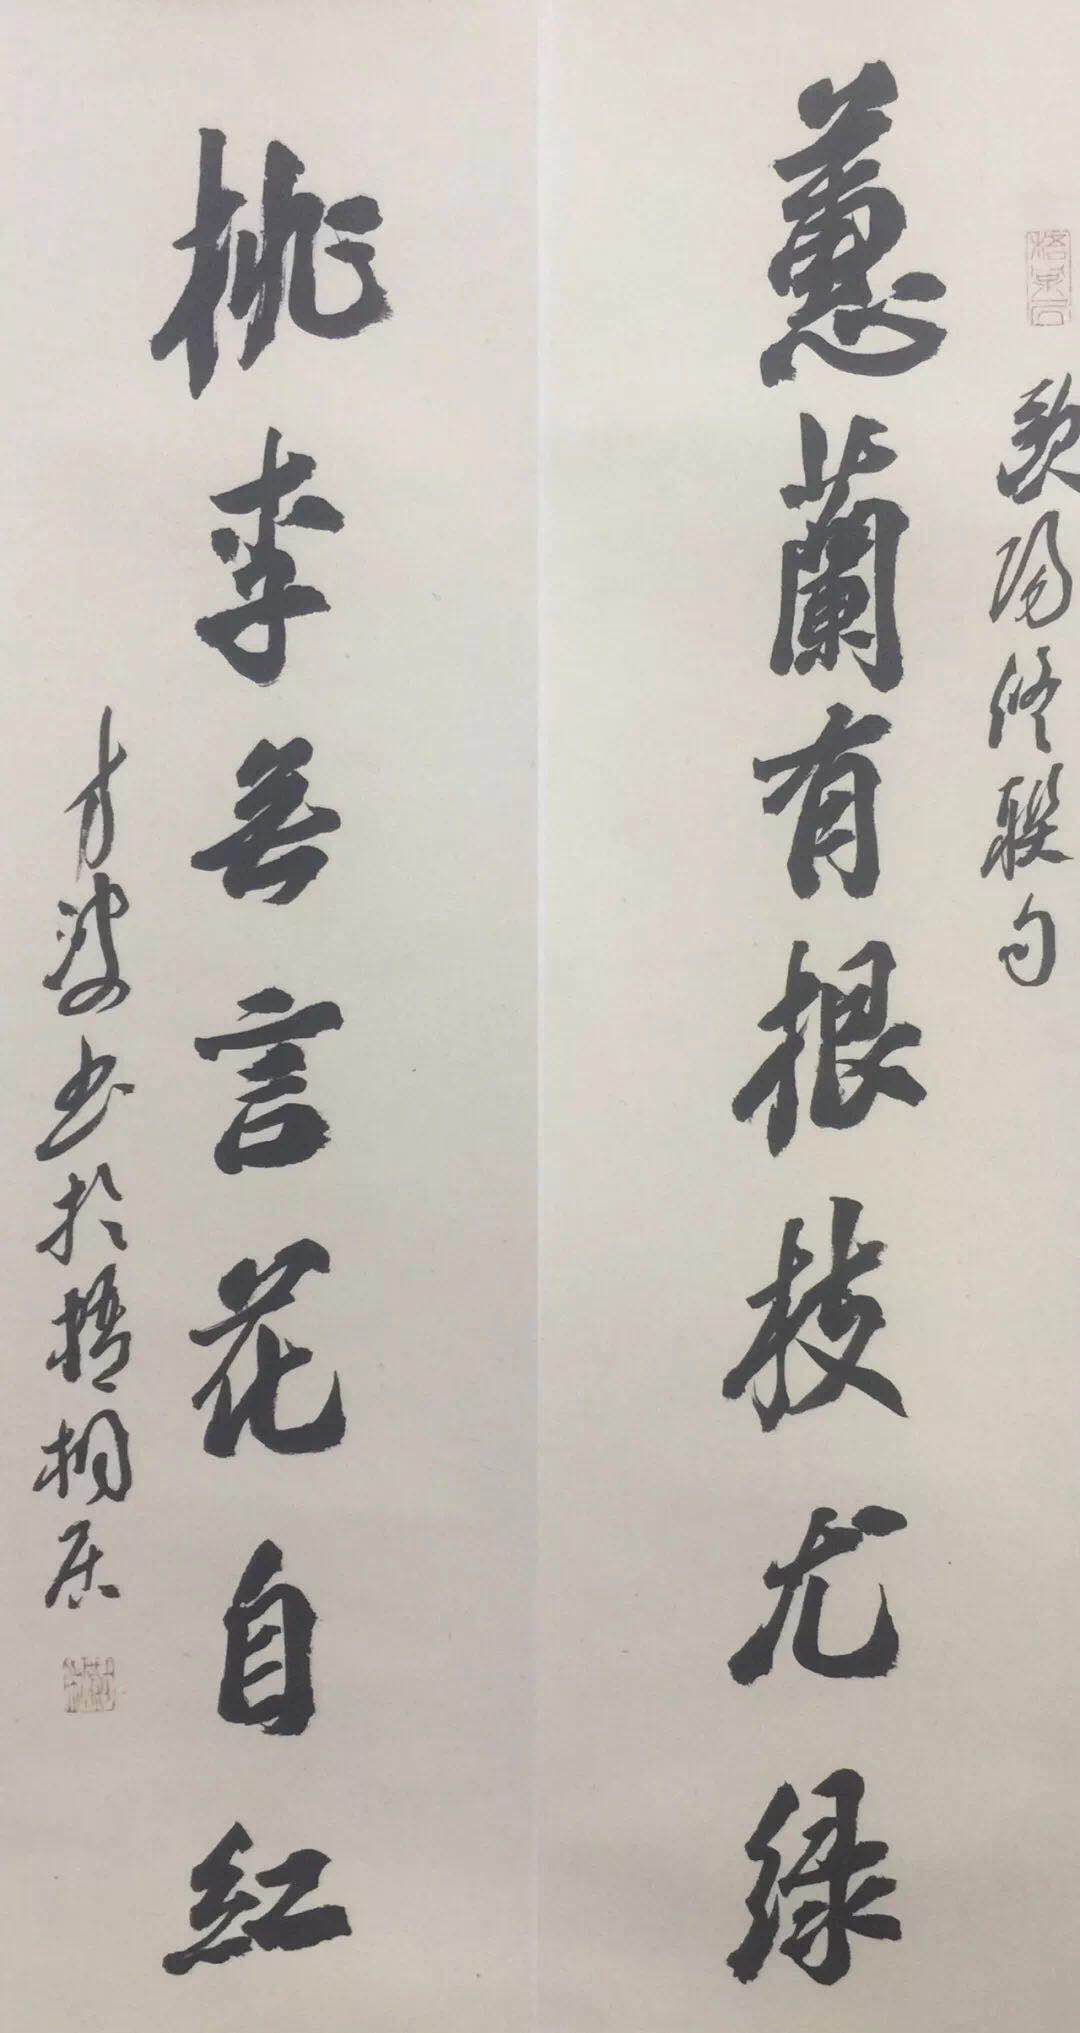 歐陽修聯句
蕙蘭有根枝尤綠
桃李無言花自紅
方波書於梧桐居